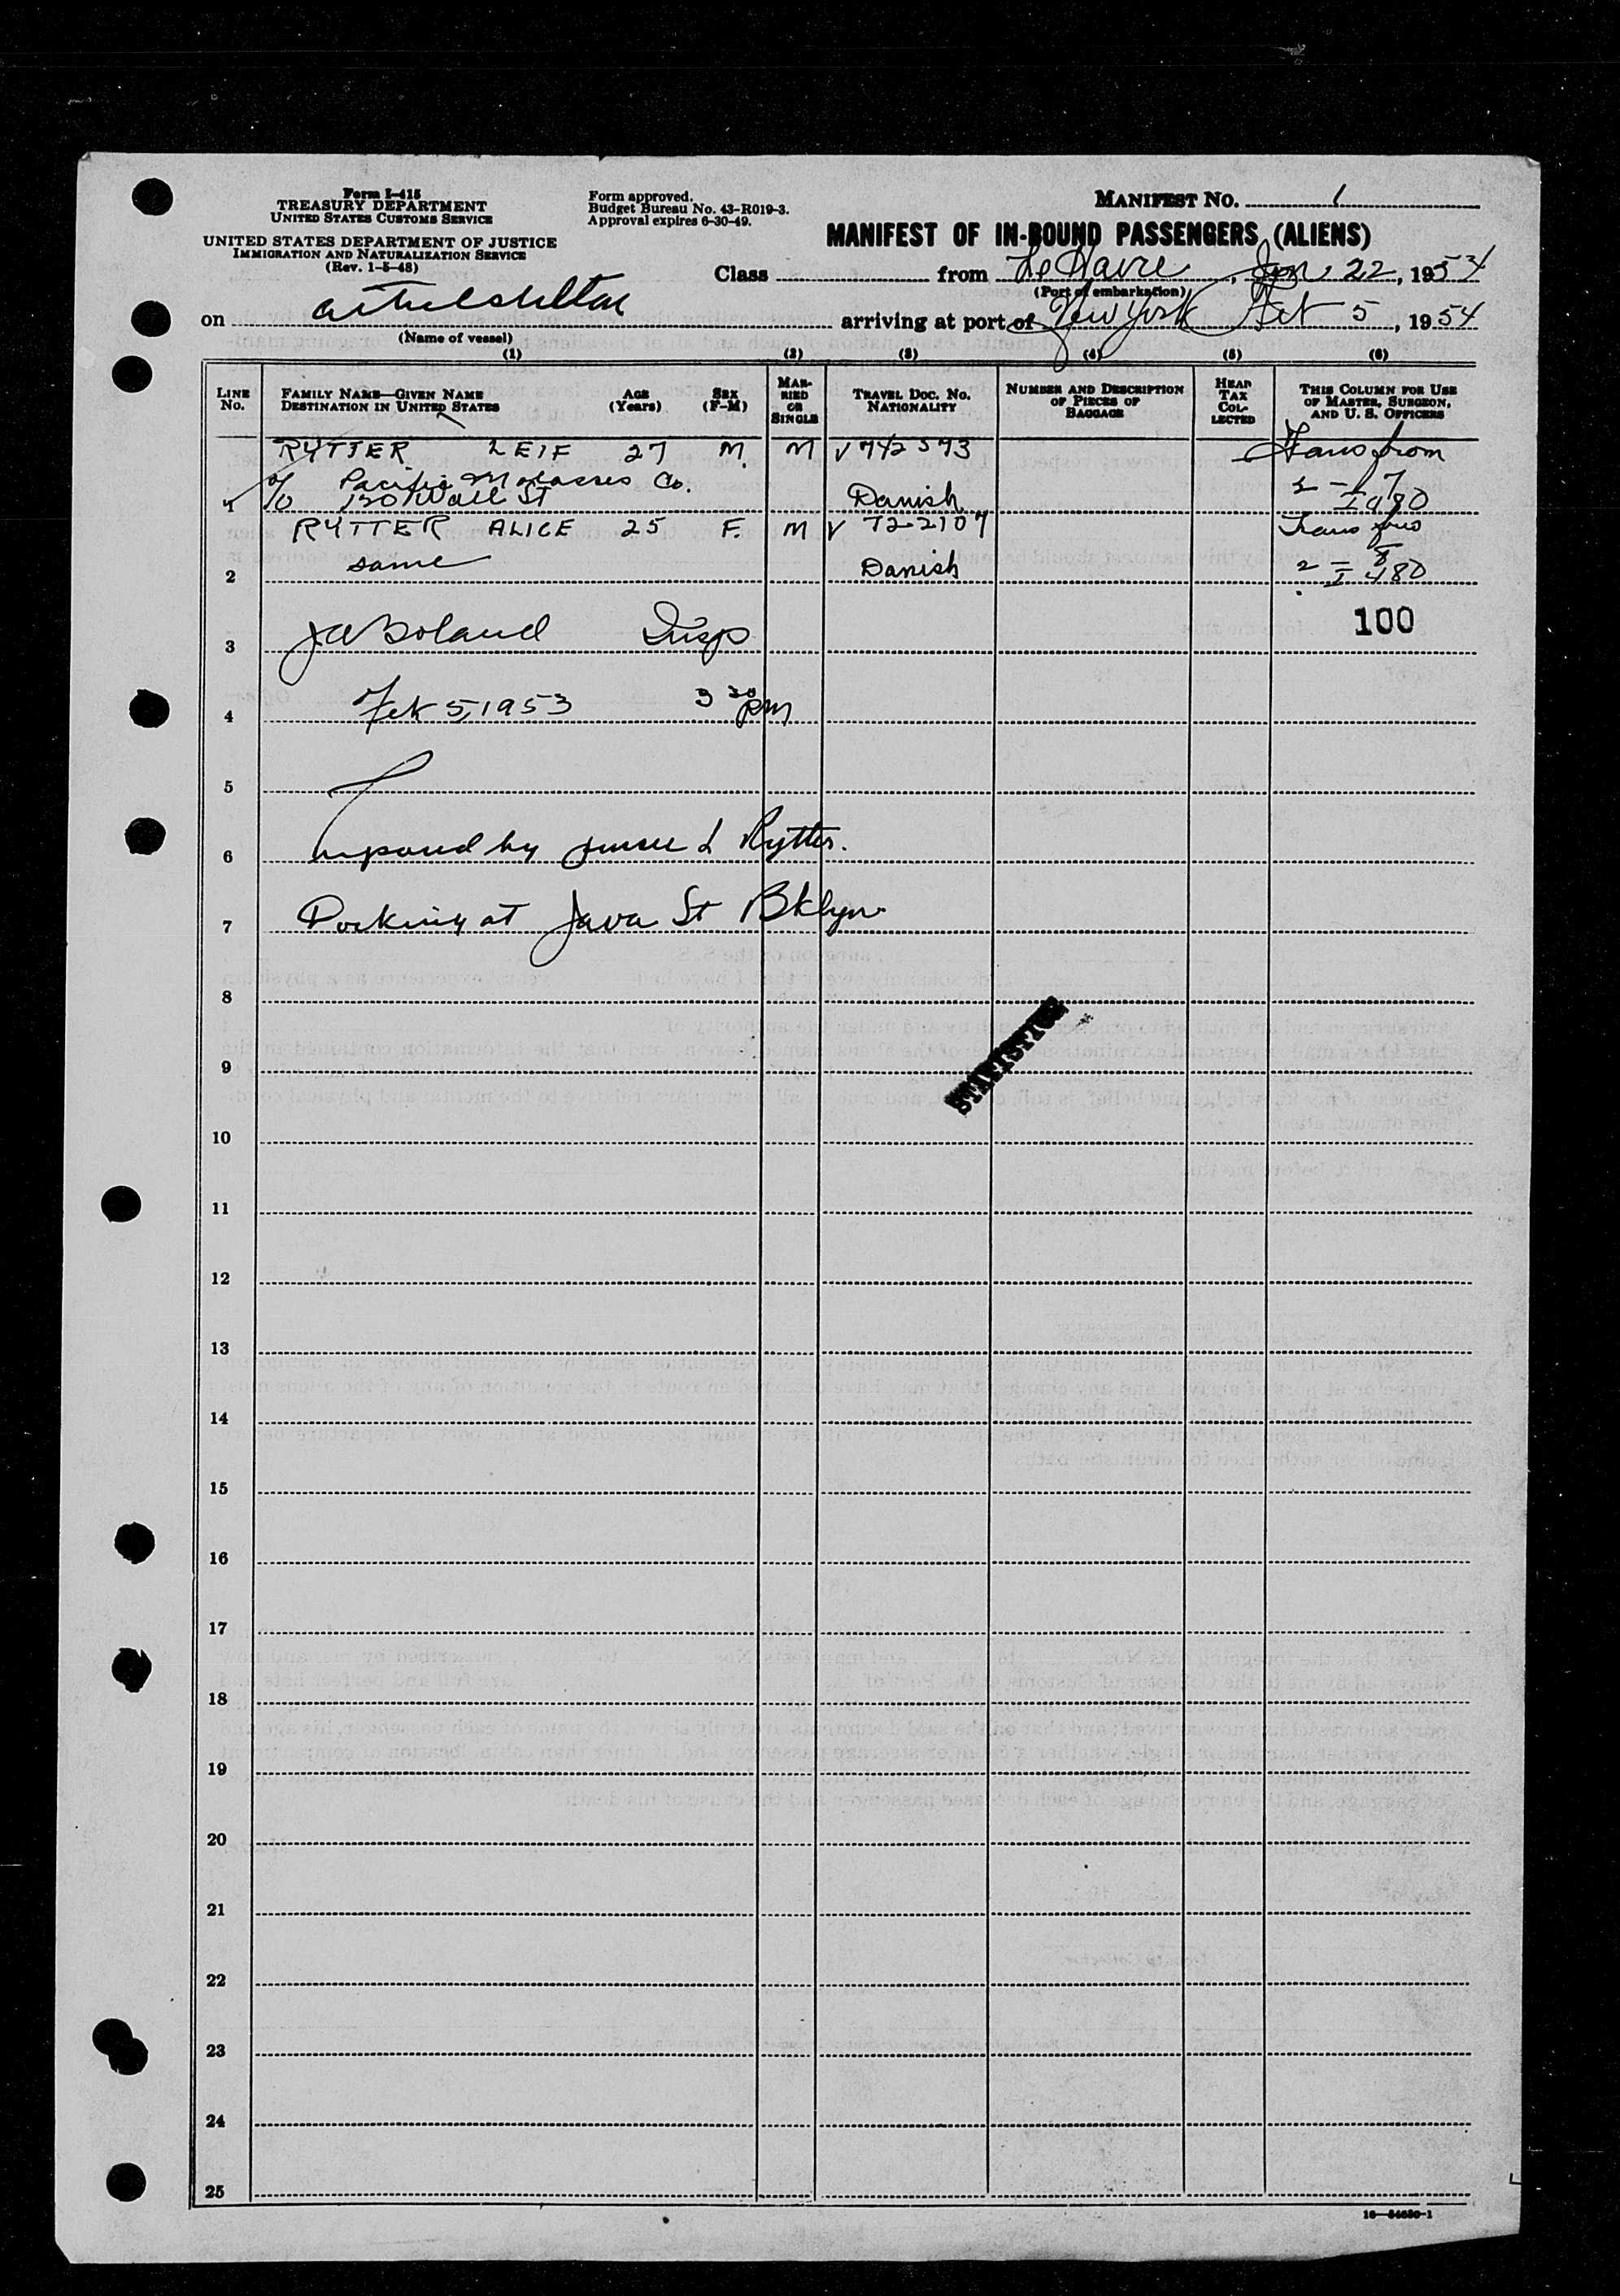 Form I-415
TREASURY DEPARTMENT
UNITED STATES CUSTOMS SERVICE
UNITED STATES DEPARTMENT OF JUSTICE
IMMIGRATION AND NATURALIZATION SERVICE
(Rev. 1-5-48)
Form approved.
Budget Bureau No. 43-R019-3.
Approval expires 6-30-49.
MANIFEST NO. 1
MANIFEST OF IN-BOUND PASSENGERS (ALIENS)
Class from Le Havre, Jan. 22, 1954
(Port of embarkation)
on arriving at port of New York 5, 1954
(Name of vessel)
(1) (2) (3) (4) (5) (6)
LINE No. FAMILY NAME—GIVEN NAME DESTINATION IN UNITED STATES AGE (Years) SEX (F-M) MARRIED OR SINGLE TRAVEL DOC. NO. NATIONALITY NUMBER AND DESCRIPTION OF PIECES OF BAGGAGE HEAD TAX COLLECTED THIS COLUMN FOR USE OF MASTER, SURGEON, AND U. S. OFFICERS
RYTTER LEIF 27 M. M V742573 Trans from
c/o Pacific Molasses Co. 2 - 7
1 120 Wall St Danish I 480
RYTTER ALICE 25 F. M V 722107 Trans from
2 same Danish 2 - 8 I 480
3 Insp 100
4 Feb 5, 1953 3 30 PM
5
6 by L Rytter.
7 Docking at Java St Bklyn.
STATISTICS
8
9
10
11
12
13
14
15
16
17
18
19
20
21
22
23
24
25